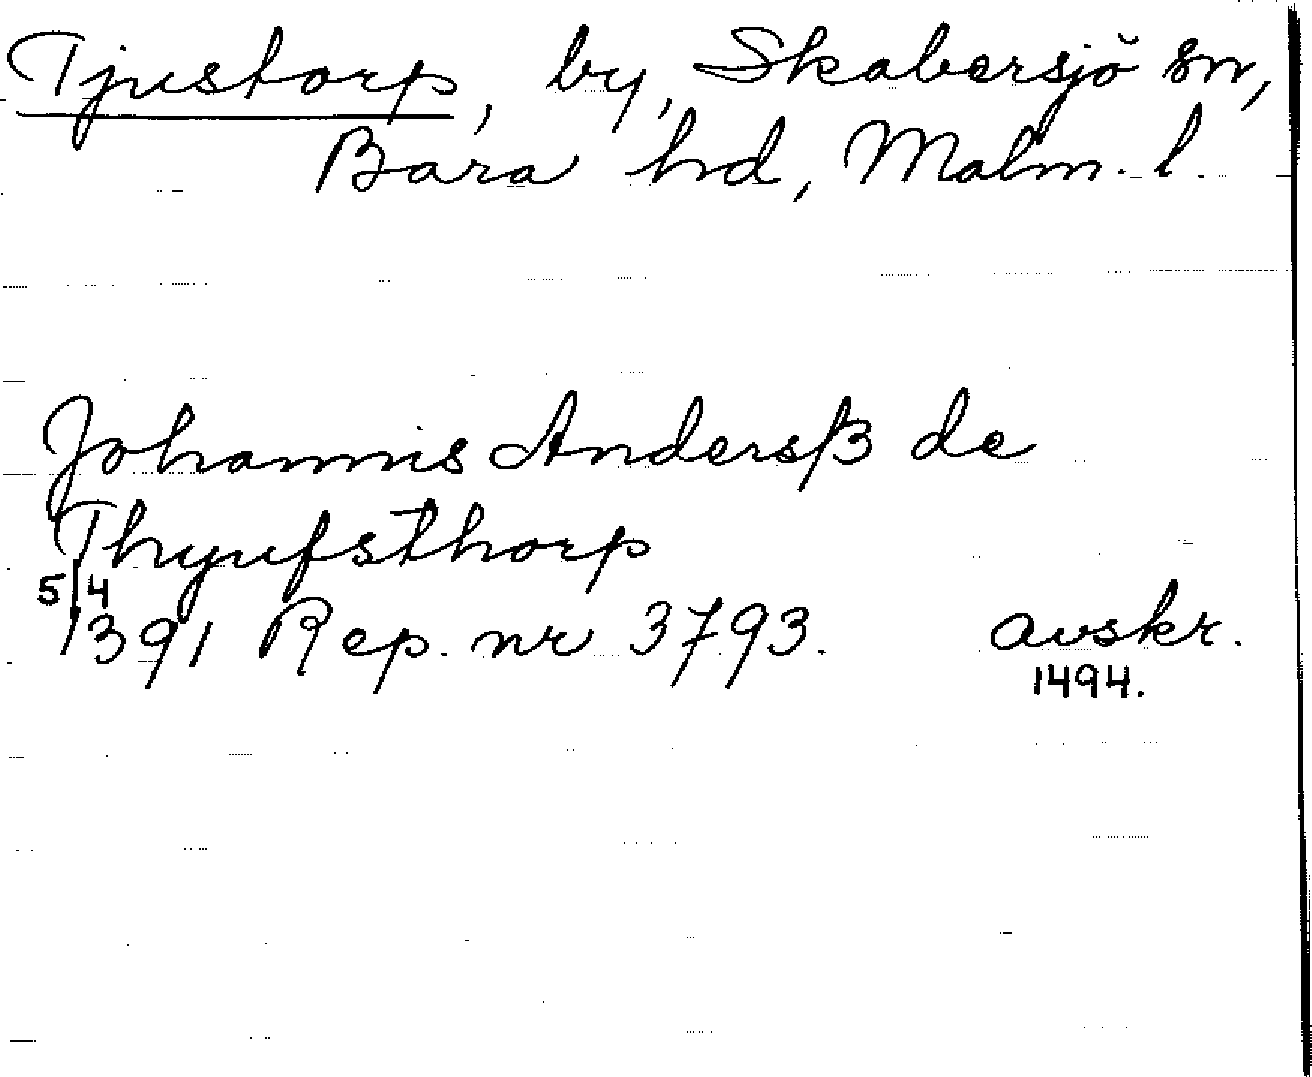 Tjustorp, by, Skabersjö sn,
Bara hd, Malm. l.
Johannis Andersß de
Thyufsthorp
5/4
1391 Rep. nr 3793. avskr.
1494.